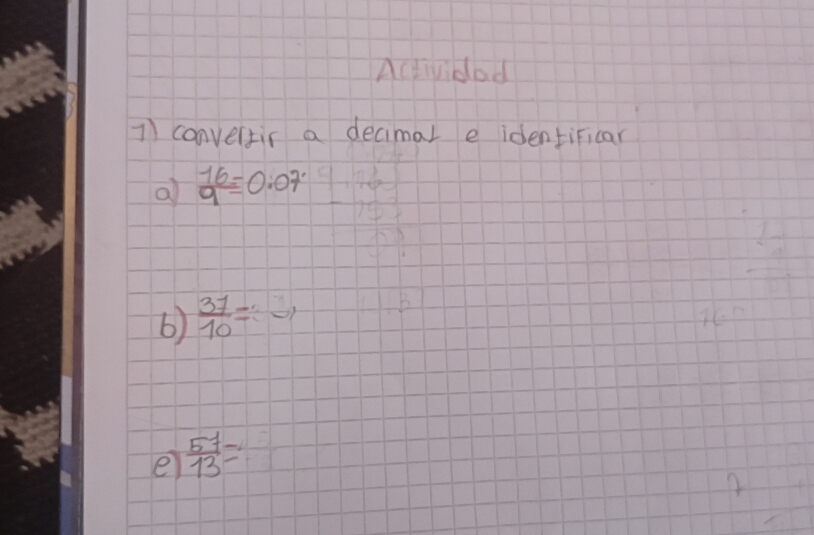 Actividad
1) convertir a decimal e identificar
a) 16/9 = 0.07
b) 31/10 =
e) 51/13 =